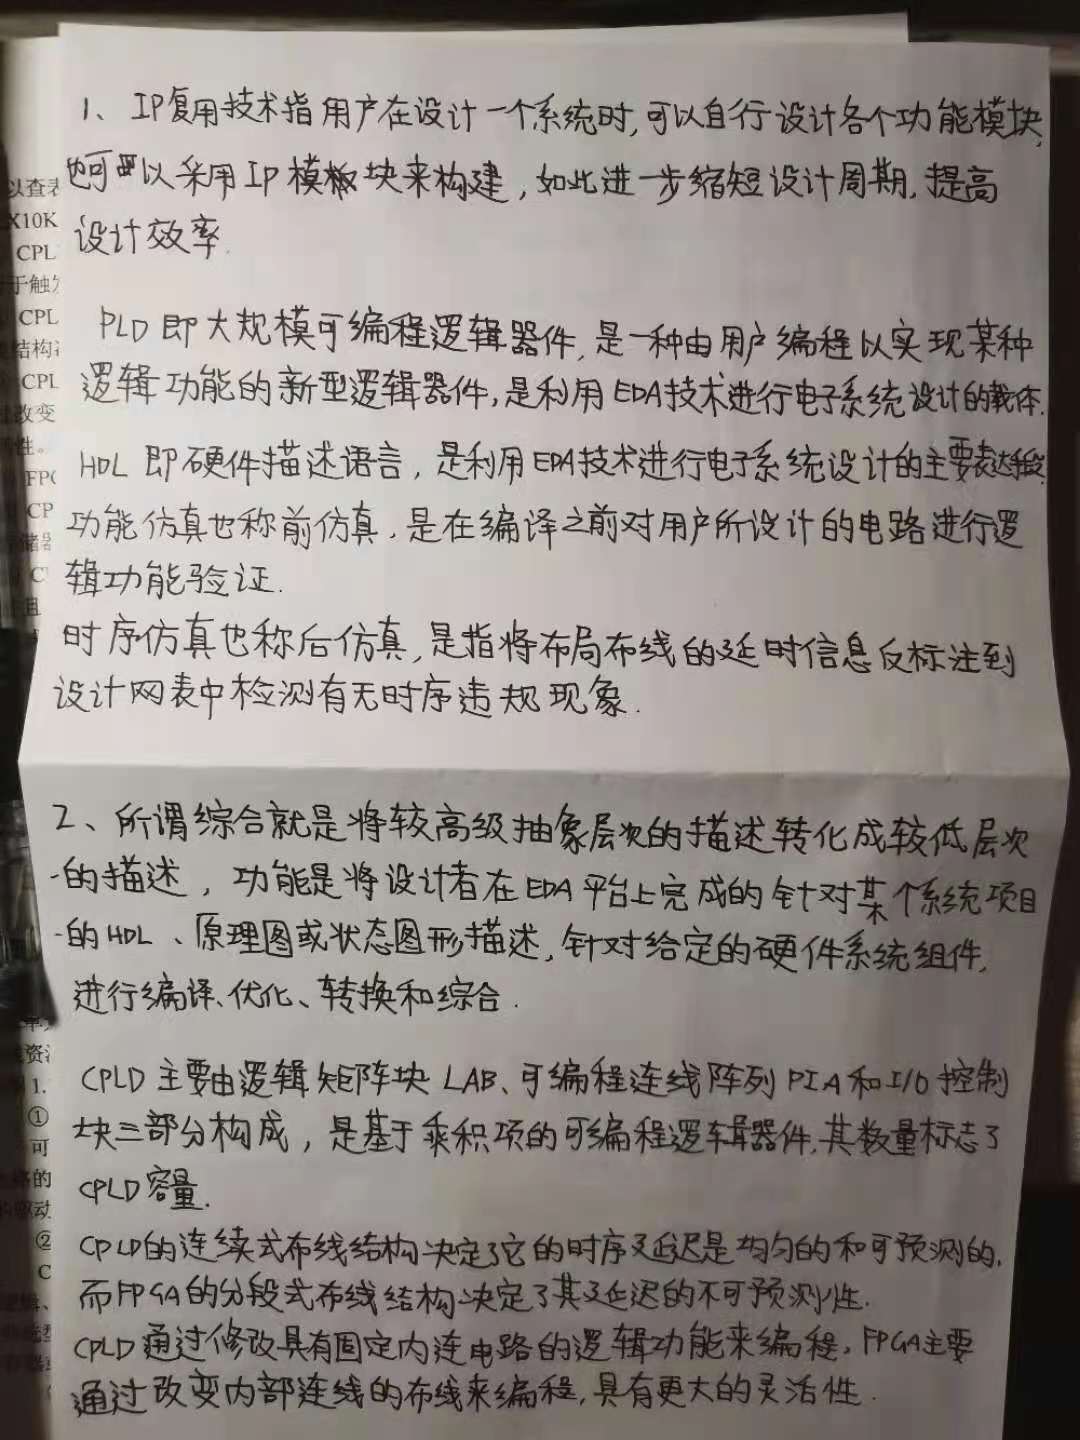 1、IP复用技术指用户在设计一个系统时,可以自行设计各个功能模块,
也可以采用IP模块来构建,如此进一步缩短设计周期,提高
设计效率.
PLD即大规模可编程逻辑器件,是一种由用户编程以实现某种
逻辑功能的新型逻辑器件,是利用EDA技术进行电子系统设计的载体.
HDL即硬件描述语言,是利用EDA技术进行电子系统设计的主要表达手段.
功能仿真也称前仿真,是在编译之前对用户所设计的电路进行逻
辑功能验证.
时序仿真也称后仿真,是指将布局布线的延时信息反标注到
设计网表中检测有无时序违规现象.
2、所谓综合就是将较高级抽象层次的描述转化成较低层次
的描述,功能是将设计者在EDA平台上完成的针对某个系统项目
的HDL、原理图或状态图形描述,针对给定的硬件系统组件,
进行编译、优化、转换和综合.
CPLD主要由逻辑矩阵块LAB、可编程连线阵列PIA和I/O控制
块三部分构成,是基于乘积项的可编程逻辑器件,其数量标志了
CPLD容量.
CPLD的连续式布线结构决定了它的时序延迟是均匀的和可预测的,
而FPGA的分段式布线结构决定了其延迟的不可预测性.
CPLD通过修改具有固定内连电路的逻辑功能来编程,FPGA主要
通过改变内部连线的布线来编程,具有更大的灵活性.
以查表
X10K
CPL
于触发
CPL
结构
CPL
改变
性。
FPG
CP
储器
C
资
1.
①
可
的
驱动
②
C